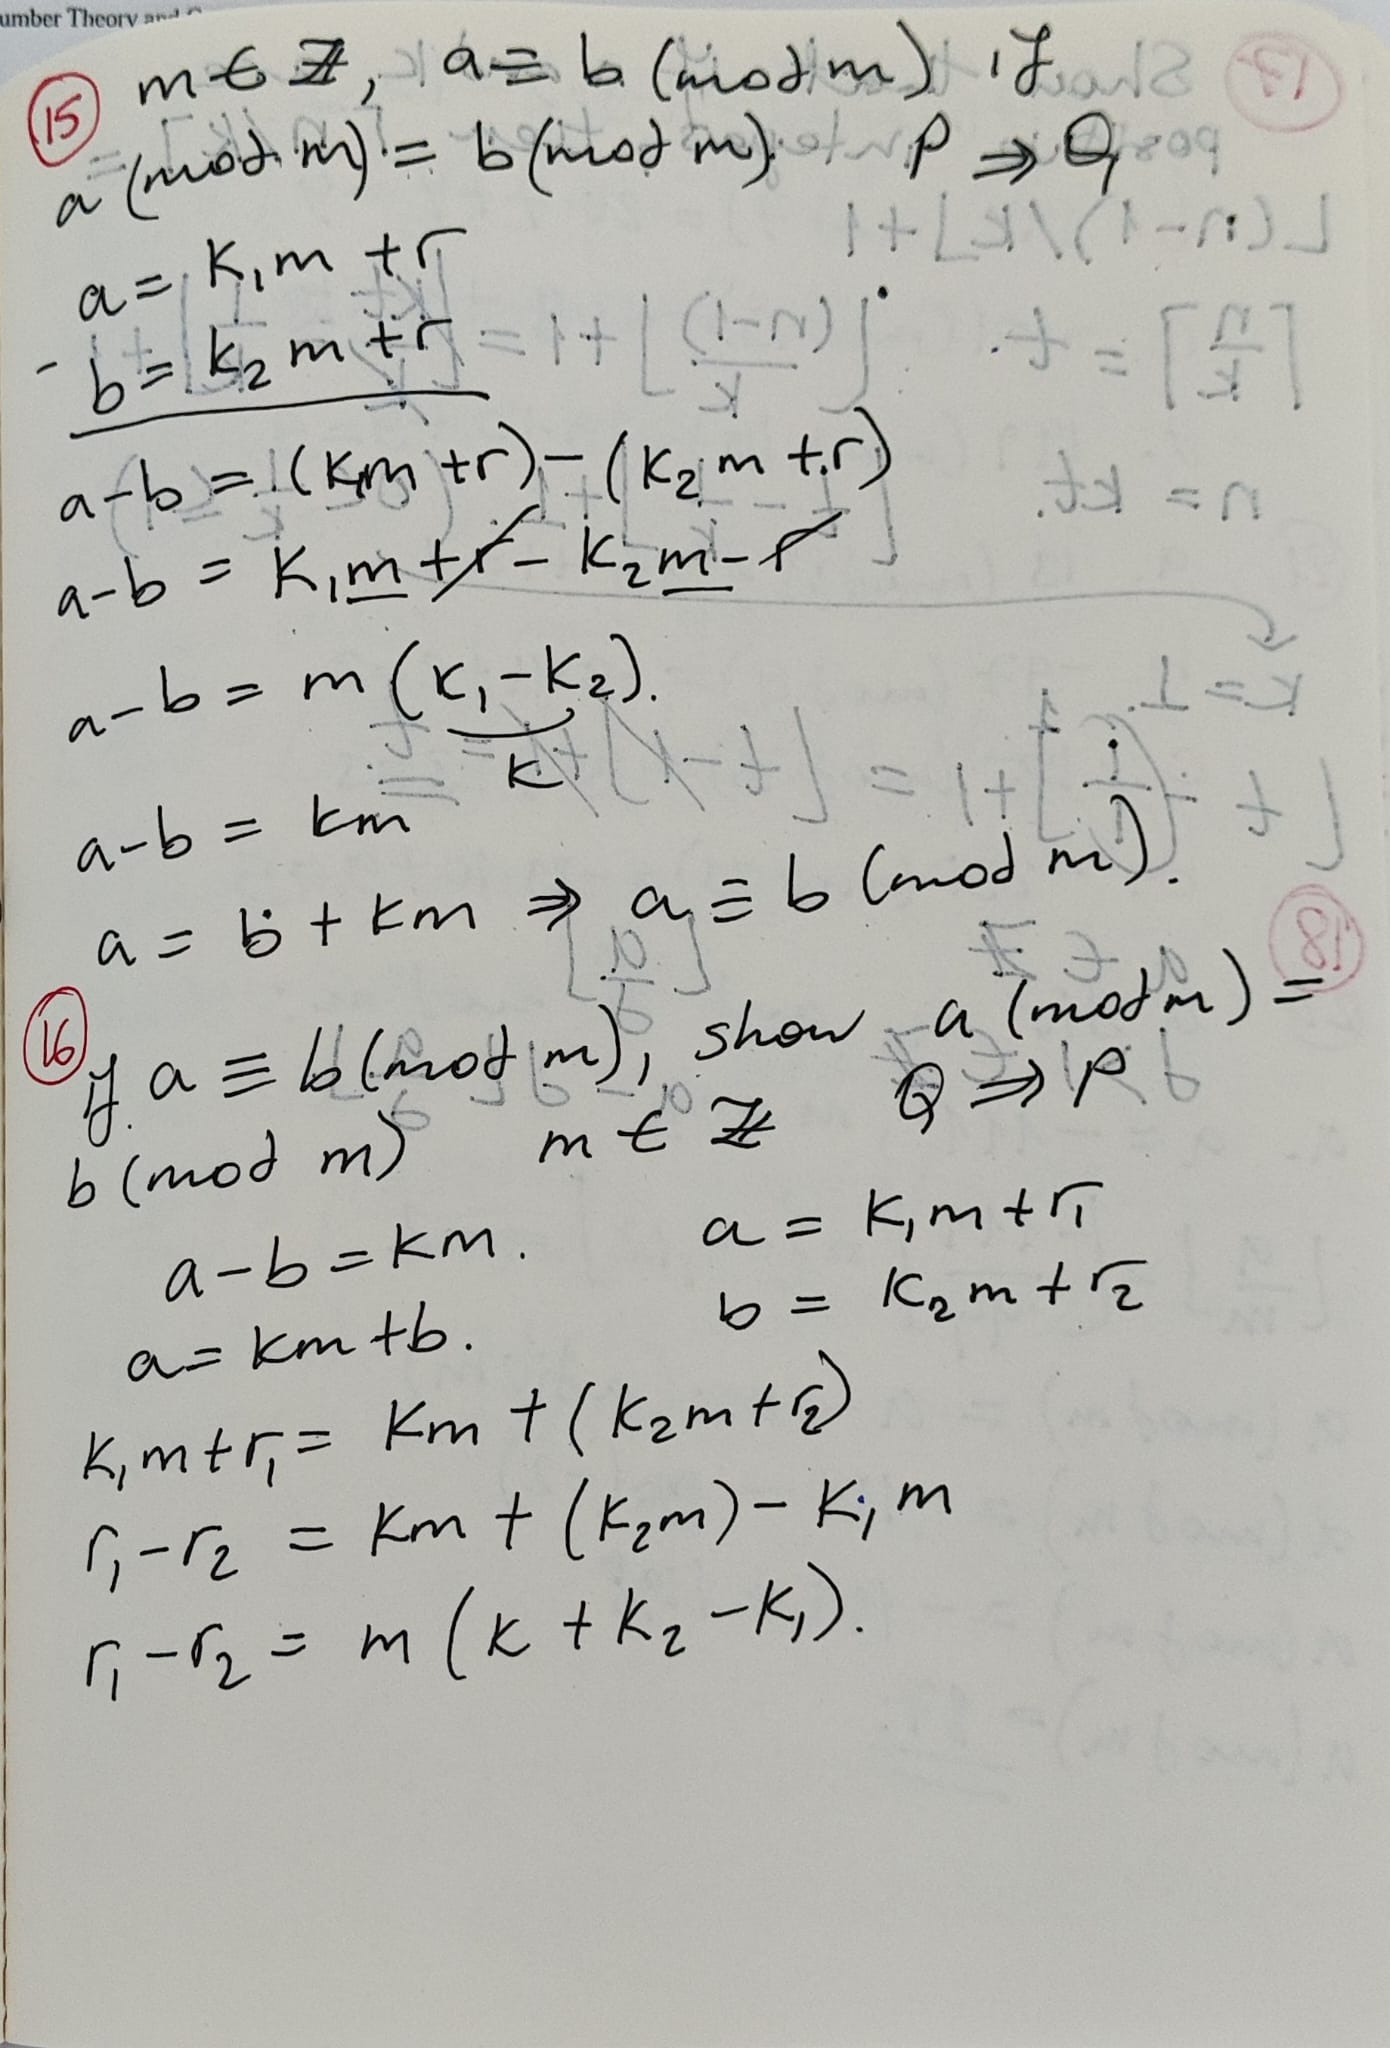 umber Theory and
15 m ∈ ℤ, a ≡ b (mod m) if
a (mod m) = b (mod m). P ⇒ Q
a = k₁m + r
- b = k₂m + r
a-b = (k₁m + r) - (k₂m + r)
a-b = k₁m + r - k₂m - r
a-b = m (k₁ - k₂).
k
a-b = km
a = b + km ⇒ a ≡ b (mod m).
16 if a ≡ b (mod m), show a (mod m) =
b (mod m) m ∈ ℤ Q ⇒ P
a-b = km. a = k₁m + r₁
a = km + b. b = k₂m + r₂
k₁m + r₁ = km + (k₂m + r₂)
r₁ - r₂ = km + (k₂m) - k₁m
r₁ - r₂ = m (k + k₂ - k₁).